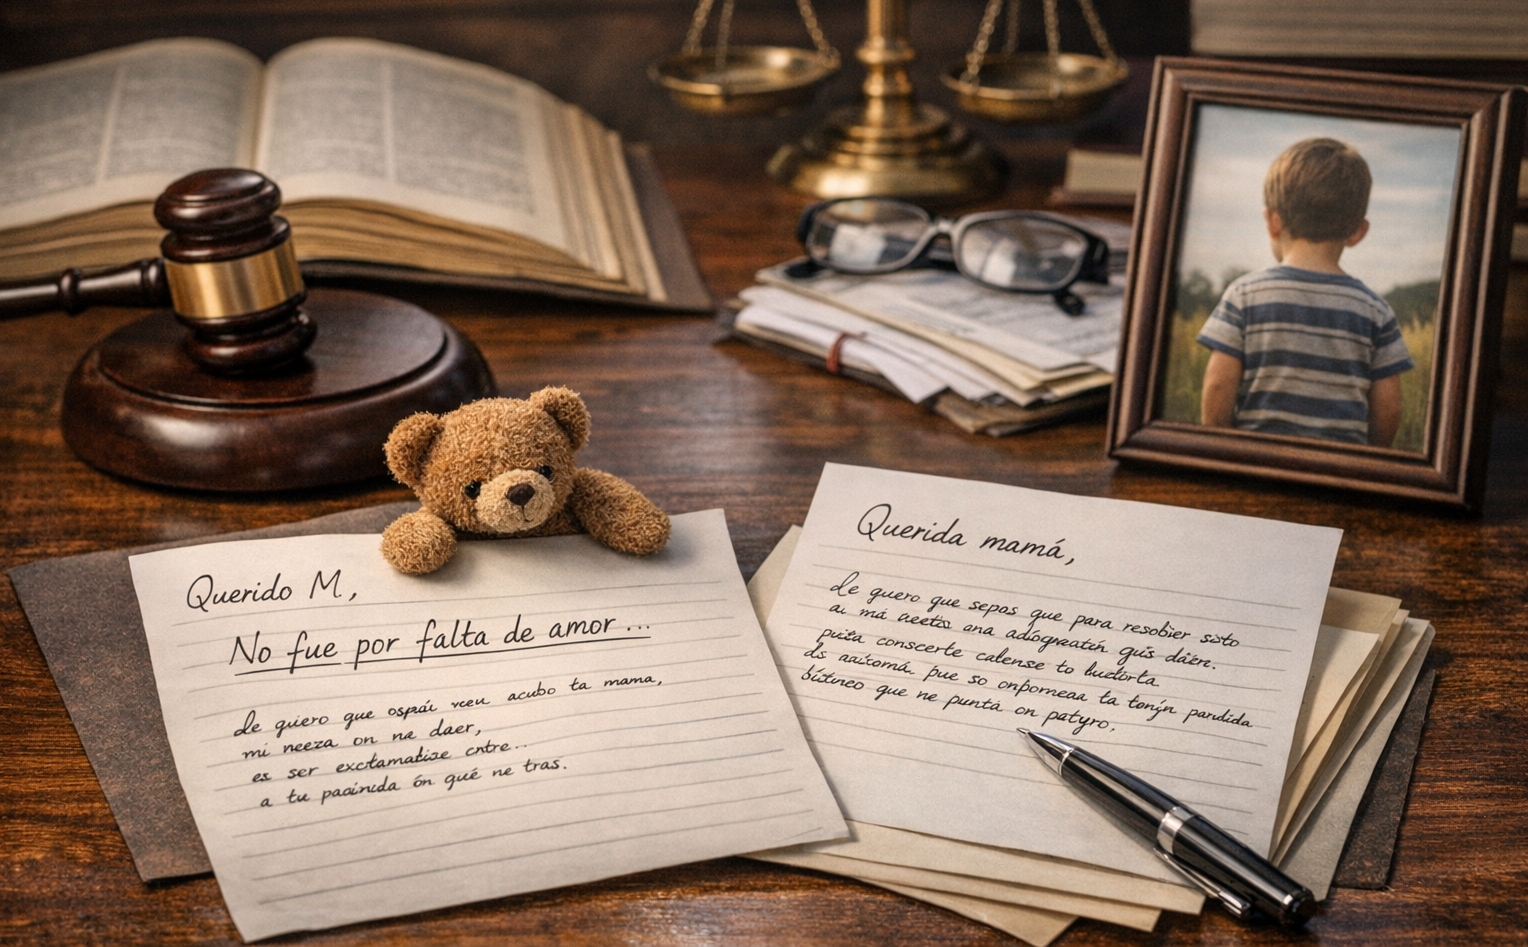 Querido M,
No fue por falta de amor...
de quiero que ospái veeu acubo ta mama,
mi neeza on na daer,
es ser exctamatise cntre..
a tu paoinida ón qué ne tras.
Querida mamá,
de guero que sepas que para resobier sisto
a má una adiogreatán guis dáen.
conscerte calense to
ds pue so onpomeaa ta tonjn pardida
que ne puntá on patyro.